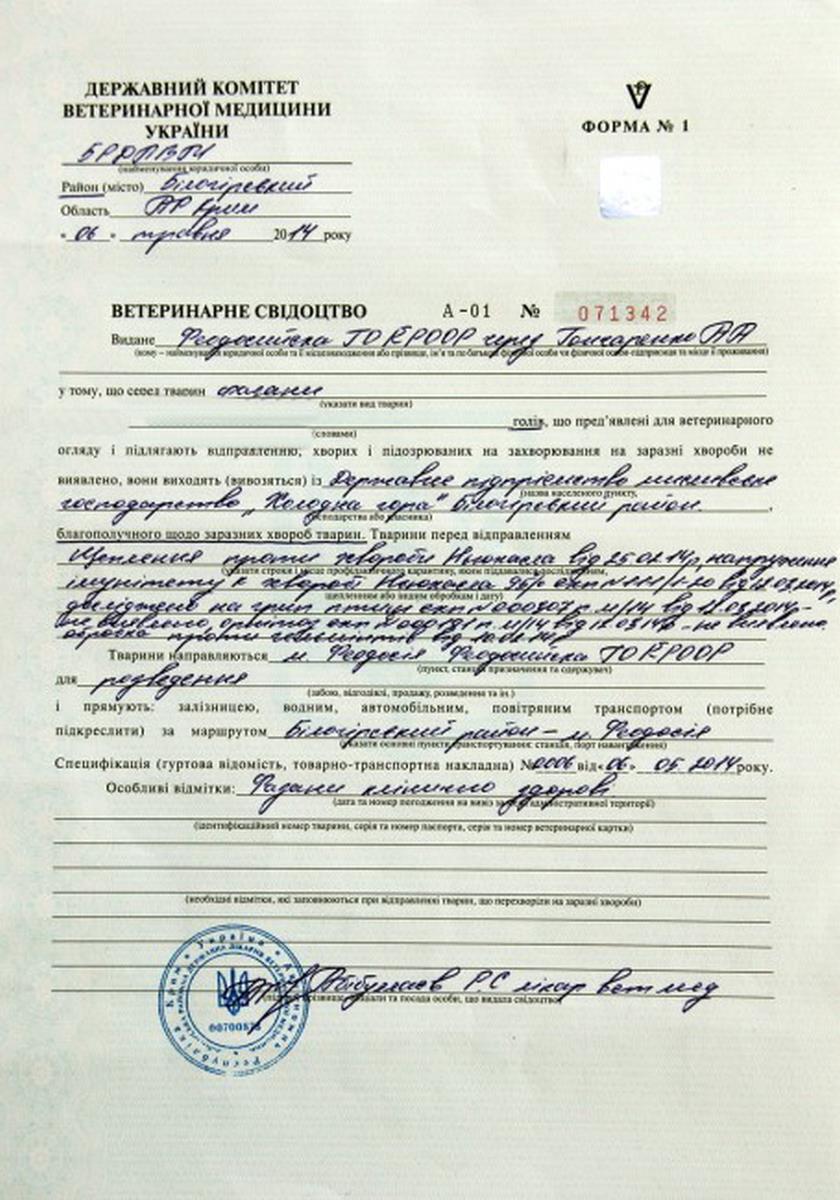 ДЕРЖАВНИЙ КОМІТЕТ
ВЕТЕРИНАРНОЇ МЕДИЦИНИ
УКРАЇНИ
ФОРМА № 1
БРДЛВМ
(найменування юридичної особи)
Район (місто) Білогірський
Область АР Крим
« 06 » травня 2014 року
ВЕТЕРИНАРНЕ СВІДОЦТВО А-01 № 071342
Видане Феодосійска ГО КРООР через Гончаренко АА
(кому – найменування юридичної особи та її місцезнаходження або прізвище, ім'я та по батькові фізичної особи чи фізичної особи-підприємця та місце її проживання)
у тому, що серед тварин фазани
(указати вид тварин)
голів, що пред'явлені для ветеринарного
(словами)
огляду і підлягають відправленню, хворих і підозрюваних на захворювання на заразні хвороби не
виявлено, вони виходять (вивозяться) із Державне підприємство мисливське
(назва населеного пункту,
господарство „Холодна гора" Білогірський район.
господарства або власника)
благополучного щодо заразних хвороб тварин. Тварини перед відправленням
Щеплення проти хвороби Ньюкасла від 25.02.14р, напруження
(указати строки і місце профілактичного карантину, яким піддавались дослідженням,
імунітету к хвороб Ньюкасла
щепленню або іншим обробкам і дату)
досліджено на грип птиці експ N000707 п.м/14 від 12.03.2014р-
не виявлено, від 12.03.14р - не виявлено.
обробка проти гельмінтів від 10.02.14р.
Тварини направляються м. Феодосія Феодосійска ГО КРООР
(пункт, станція призначення та одержувач)
для розведення
(забою, відгодівлі, продажу, розведення та ін.)
і прямують: залізницею, водним, автомобільним, повітряним транспортом (потрібне
підкреслити) за маршрутом Білогірський район – м. Феодосія
(указати основні пункти транспортування: станція, порт навантаження)
Специфікація (гуртова відомість, товарно-транспортна накладна) №0006 від «06» 05. 2014 року.
Особливі відмітки: Фазани клінично здорові
(дата та номер погодження на вивіз за межі адміністративної території)
(ідентифікаційний номер тварини, серія та номер паспорта, серія та номер ветеринарної картки)
(необхідні відмітки, які заповнюються при відправленні тварин, що перехворіли на заразні хвороби)
Абібулаєв Р.С лікар вет мед
(підпис, прізвище, ініціали та посада особи, що видала свідоцтво)
Україна Автономна Республіка Крим